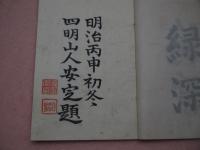 明治丙申初冬
四明山人安定題
緑深